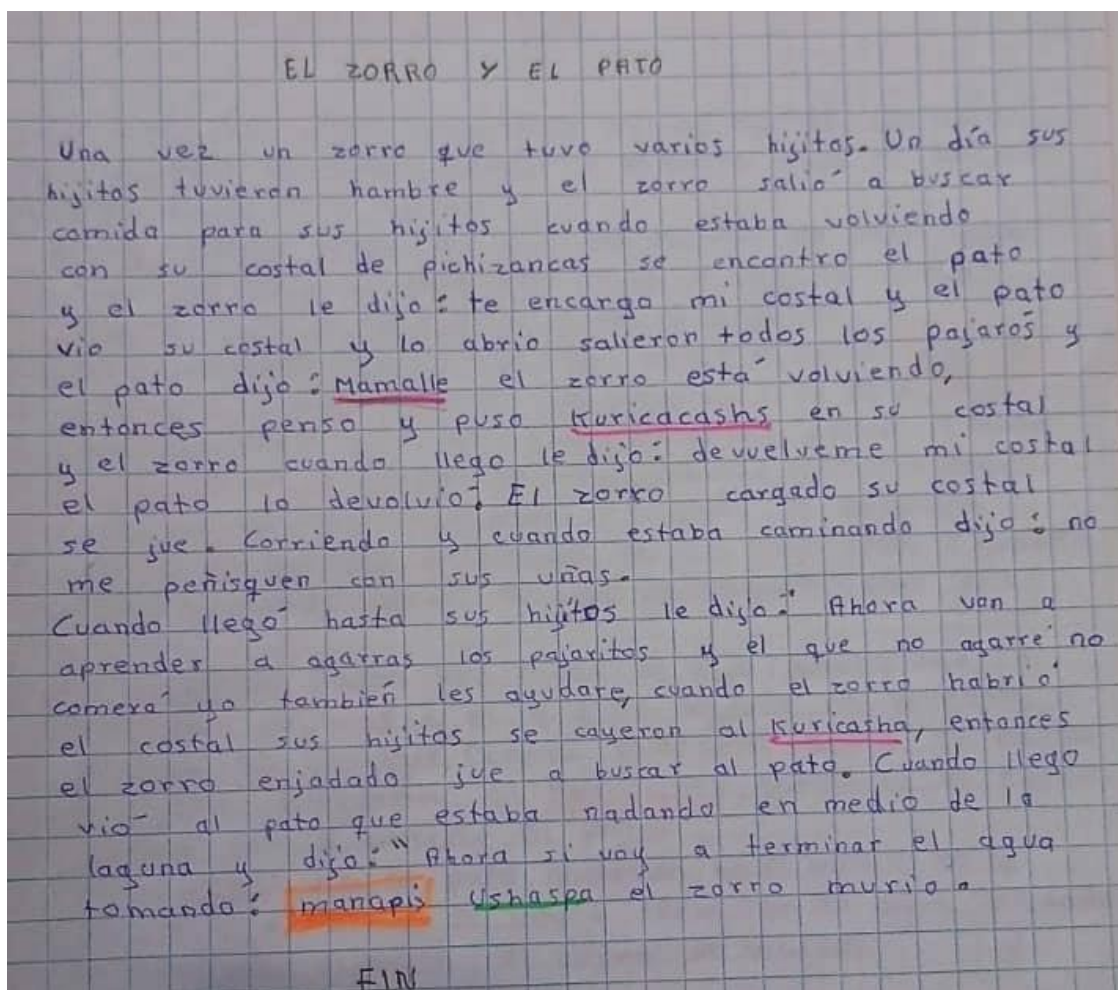 EL ZORRO Y EL PATO
Una vez un zorro que tuvo varios hijitos. Un día sus
hijitos tuvieron hambre y el zorro salió a buscar
comida para sus hijitos cuando estaba volviendo
con su costal de pichizancas se encontro el pato
y el zorro le dijo: te encargo mi costal y el pato
vio su costal y lo abrio salieron todos los pajaros y
el pato dijo: Mamalle el zorro está volviendo,
entonces penso y puso Kuricacashs en su costal
y el zorro cuando llego le dijo: devuelveme mi costal
el pato lo devolvio. El zorro cargado su costal
se jue. Corriendo y cuando estaba caminando dijo: no
me peñisquen con sus uñas.
Cuando llegó hasta sus hijitos le dijo: Ahora van a
aprender a agarras los pajaritos y el que no agarre no
comerá yo también les ayudare, cuando el zorro habrió
el costal sus hijitos se cayeron al Kuricasha, entonces
el zorro enjadado jue a buscar al pato. Cuando llego
vió al pato que estaba nadando en medio de la
laguna y dijo: "Ahora si voy a terminar el agua
tomando: manapis Ushaspa el zorro murio.
FIN